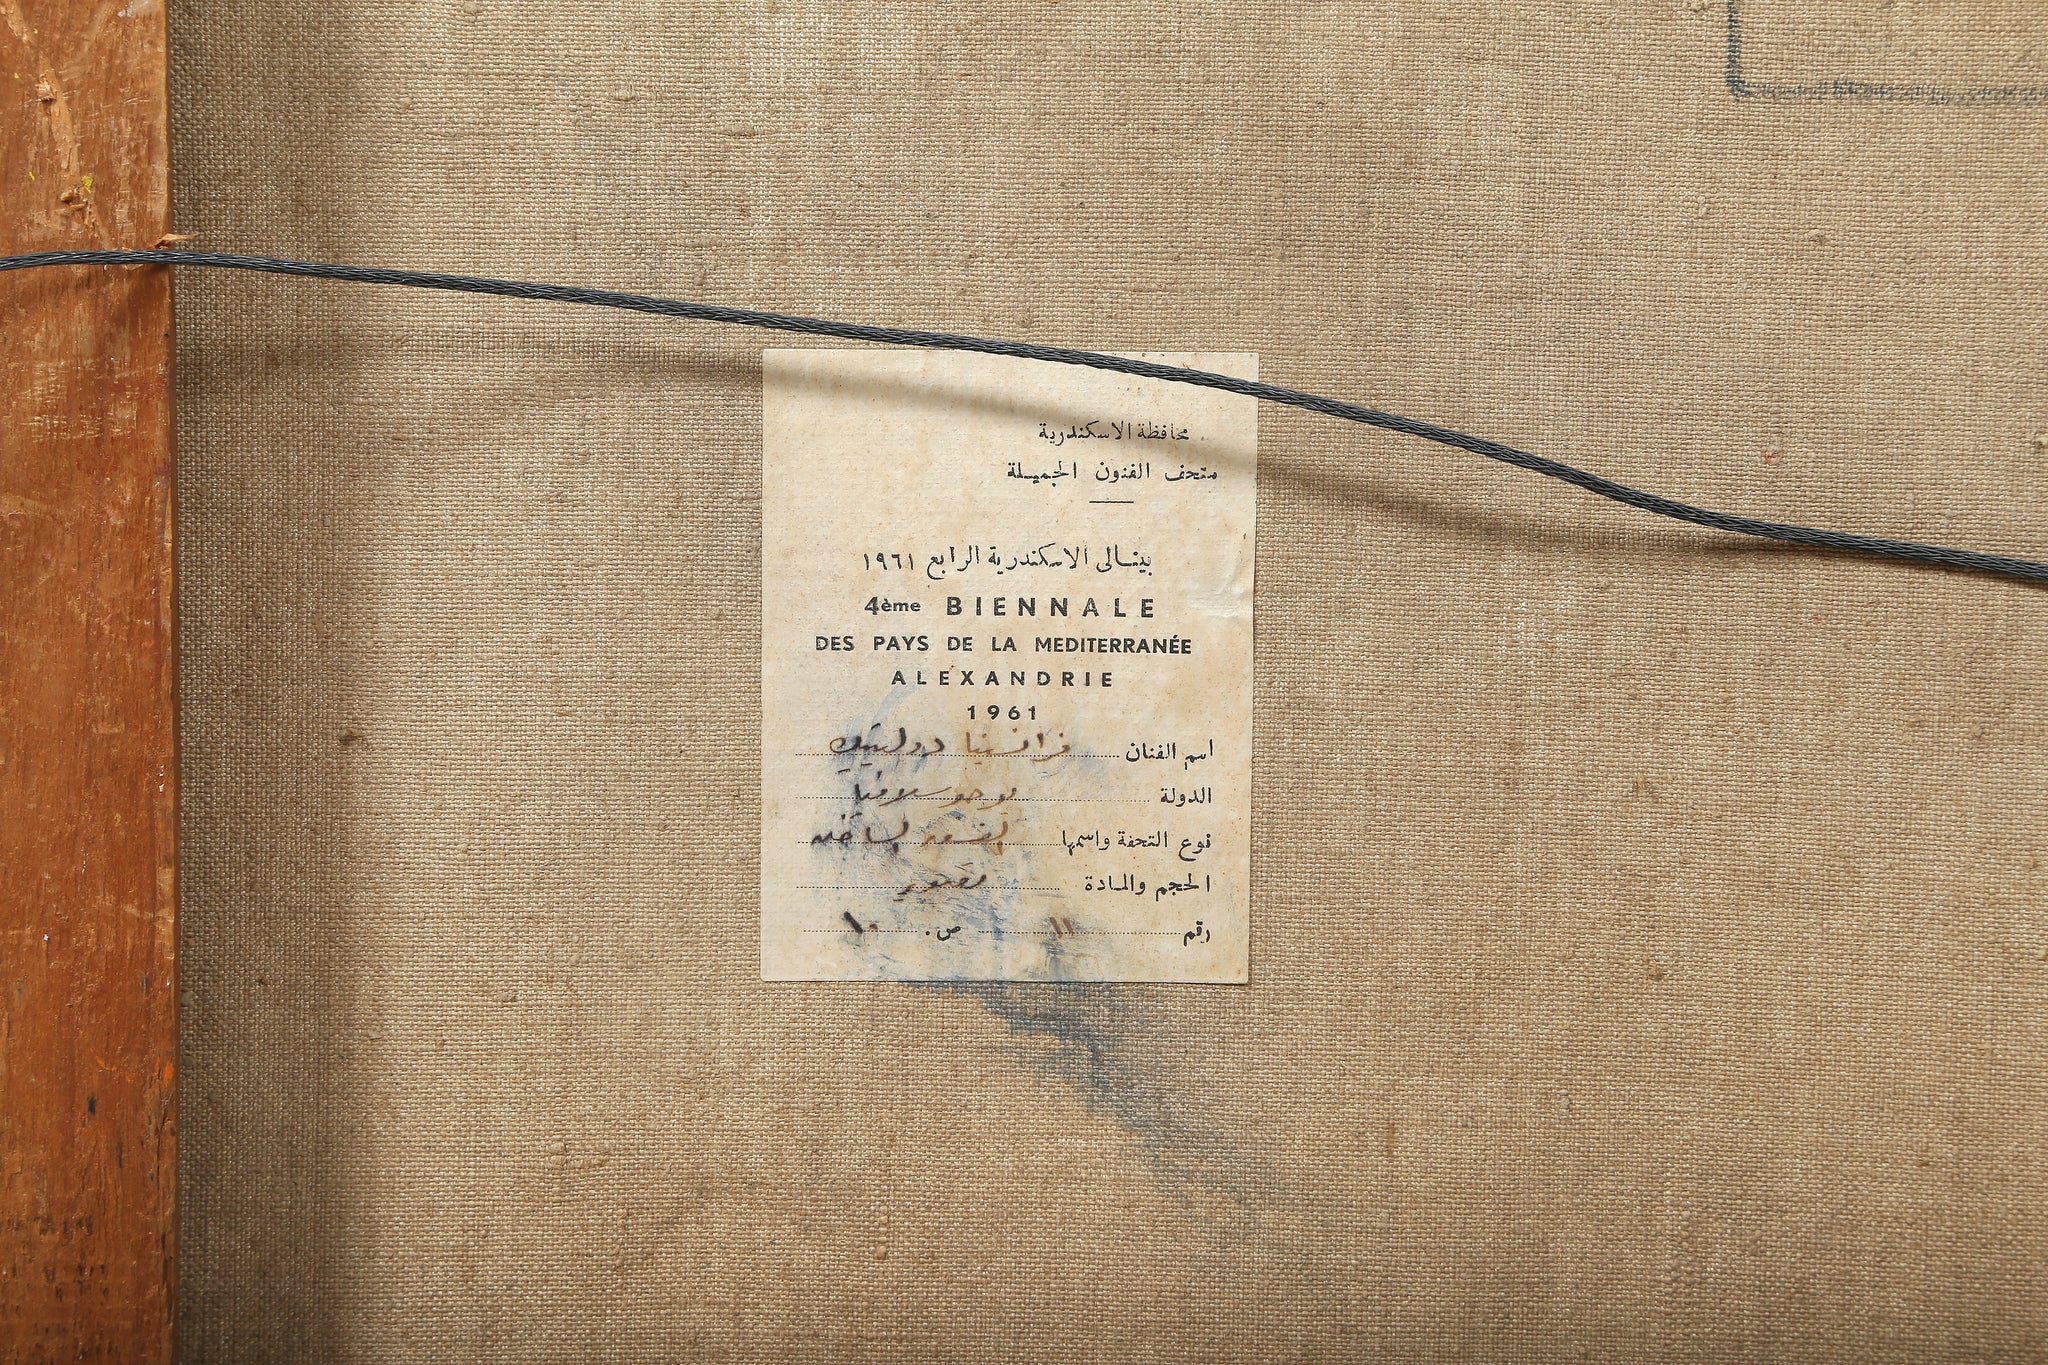 محافظة الاسكندرية
متحف الفنون الجميلة
بينالى الاسكندرية الرابع ١٩٦١
4ème BIENNALE
DES PAYS DE LA MEDITERRANÉE
ALEXANDRIE
1961
اسم الفنان فرانسينا دولينيك
الدولة يوجوسلافيا
نوع التحفة واسمها
الحجم والمادة تصوير
رقم ١١ ص. ١٠